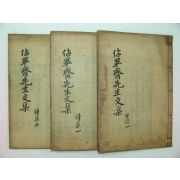 佔畢齋先生文集
佔畢齋先生文集
詩集一
佔畢齋先生文集